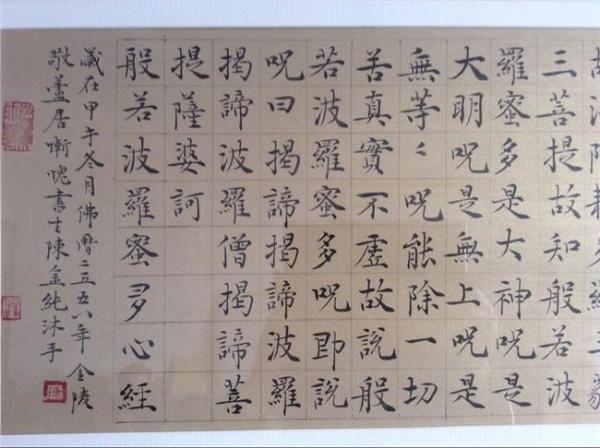 三菩提故知般若波
羅蜜多是大神呪是
大明呪是無上呪是
無等々呪能除一切
苦真實不虛故說般
若波羅蜜多呪即說
呪曰揭諦揭諦波羅
揭諦波羅僧揭諦菩
提薩婆訶
般若波羅蜜多心經
歲在甲午冬月佛曆二五五八年金陵
敬居慚愧書士陳金純沐手